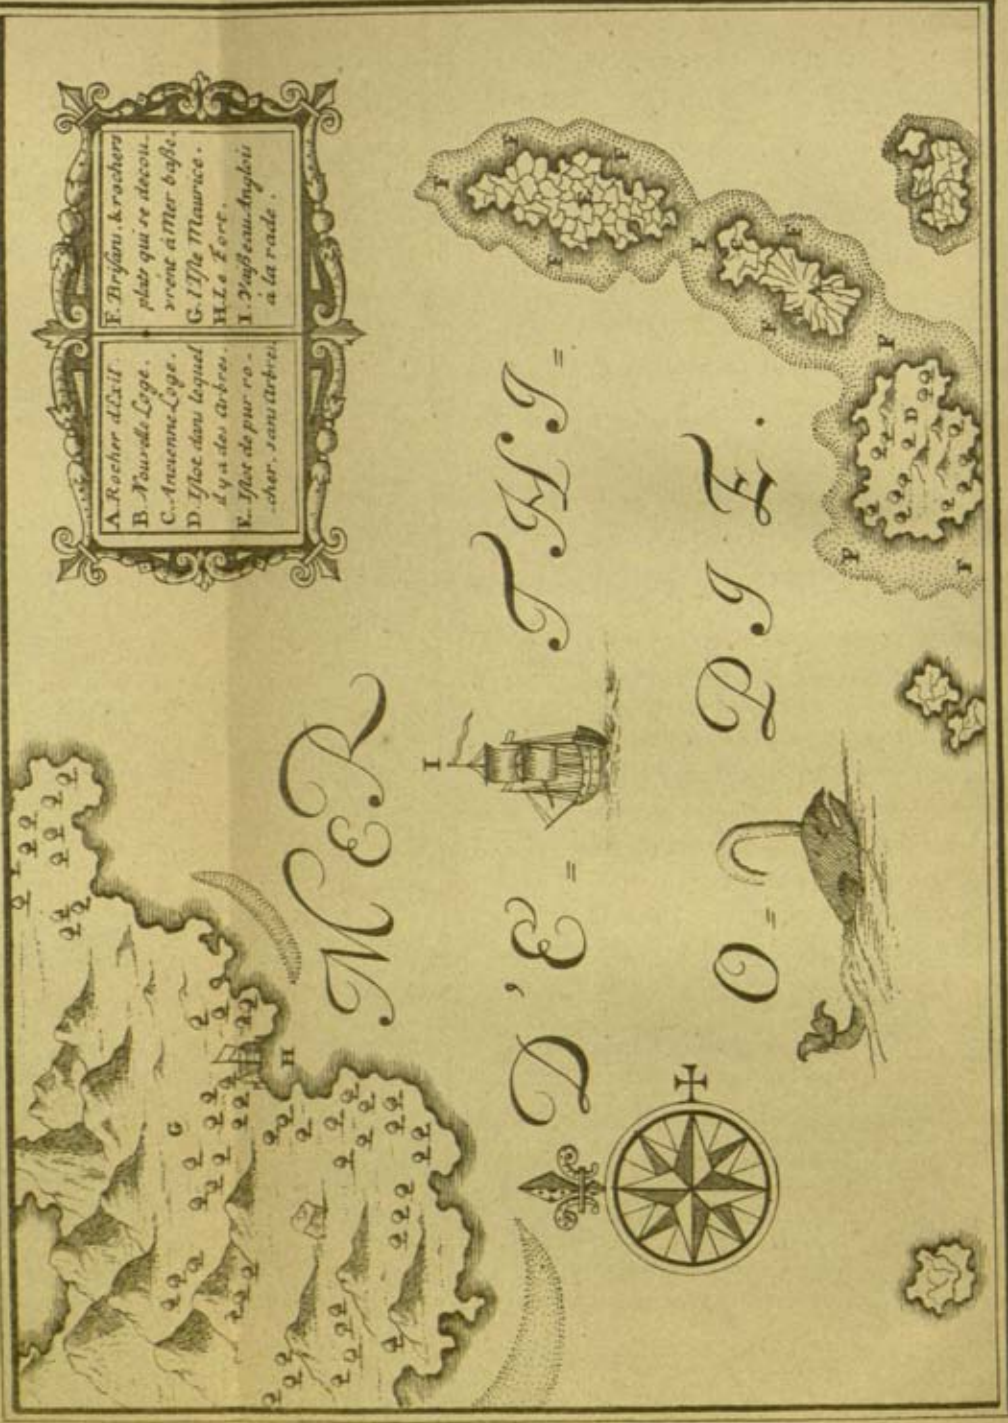 A. Rocher d'Exil.
B. Nouvelle Loge.
C. Ancienne Loge.
D. Islot dans lequel
il y a des Arbres.
E. Islot de pur ro-
cher, sans arbres.
F. Brisans, & rochers
plats qui se decou-
vrent à Mer basse.
G. l'Isle Maurice.
H. Le Fort.
I. Vaisseau Anglois
à la rade.
MER
D'E= THI=
O= PIE.
G
H
I
F
F
F
F
E
F
F
F
E
F
D
F
F